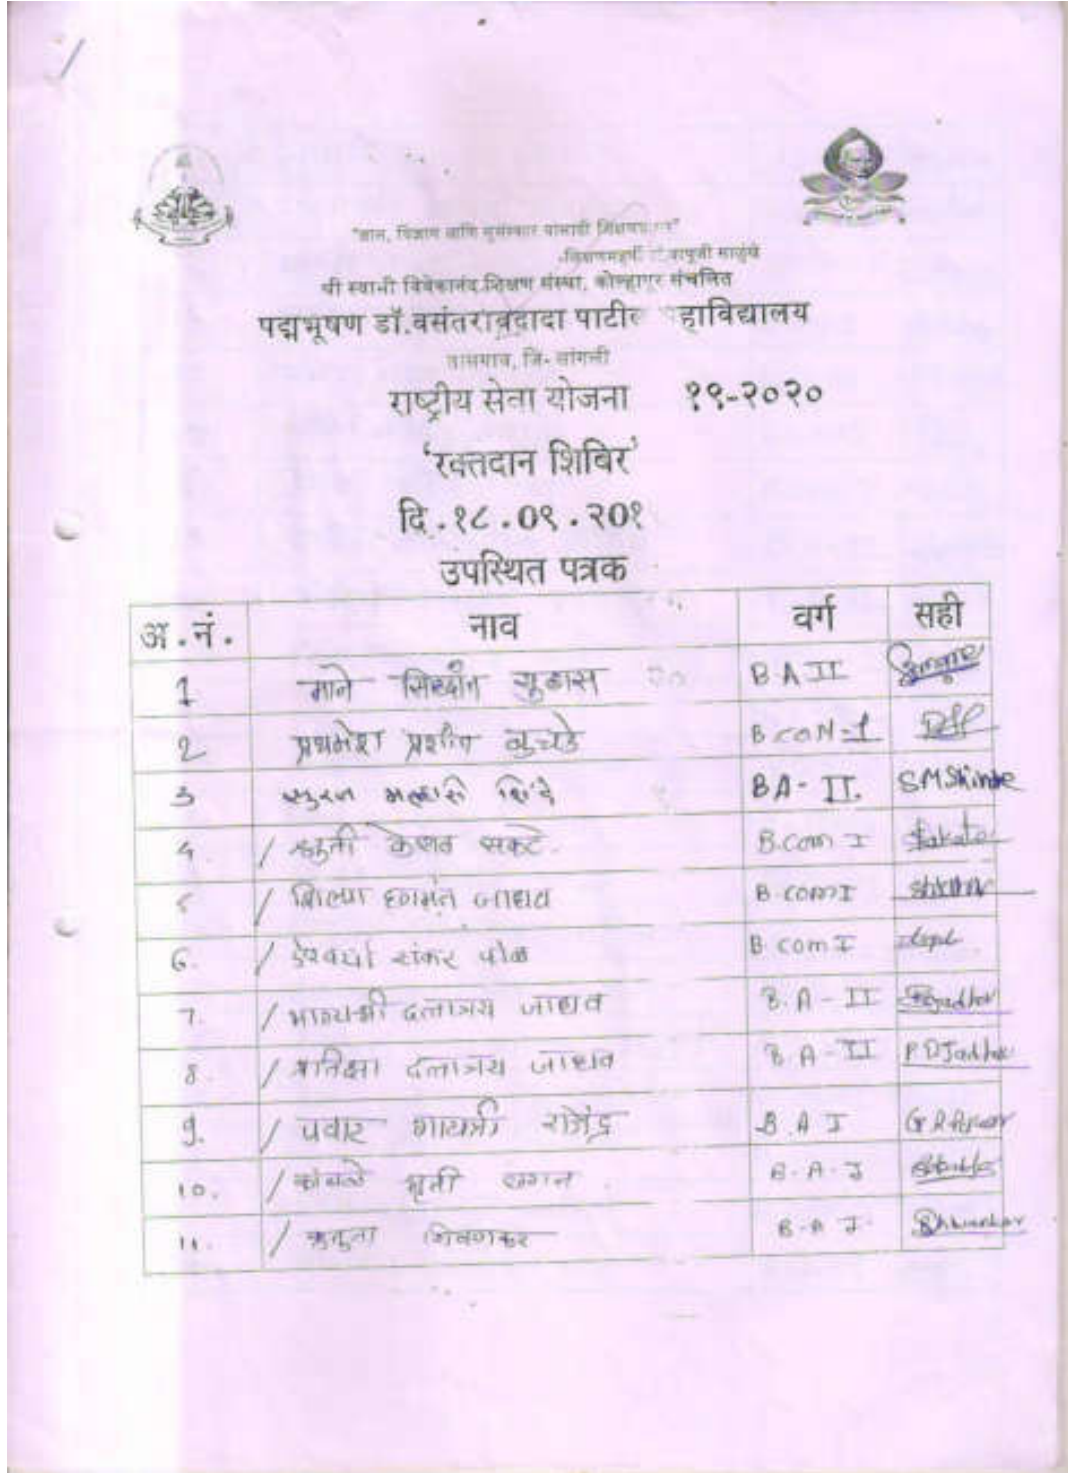 "ज्ञान, विज्ञान आणि सुसंस्कार यांसाठी शिक्षणप्रसार"
-शिक्षणमहर्षी डॉ.बापूजी साळुंखे
श्री स्वामी विवेकानंद शिक्षण संस्था, कोल्हापूर संचलित
पद्मभूषण डॉ.वसंतरावदादा पाटील महाविद्यालय
तासगाव, जि- सांगली
राष्ट्रीय सेवा योजना १९-२०२०
'रक्तदान शिबिर'
दि.१८.०९.२०१
उपस्थित पत्रक
अ.नं. नाव वर्ग सही
1 माने B.A II
2 प्रथमेश B COM-1
3 सुरज मल्हारी शिंदे BA-II. SMShinde
4. केशव सकटे. B.com I Sakate
5 शिल्पा हणमंत जाधव B.com I
6. शंकर पोळ B.com I
7. भाग्यश्री दत्तात्रय जाधव B.A-II
8. प्रतिक्षा दत्तात्रय जाधव B.A-II P.D.Jadhav
9. पवार गायत्री राजेंद्र B.A I G.R.Pawar
10. कांबळे B.A.I
11. शिवणकर B.A I.